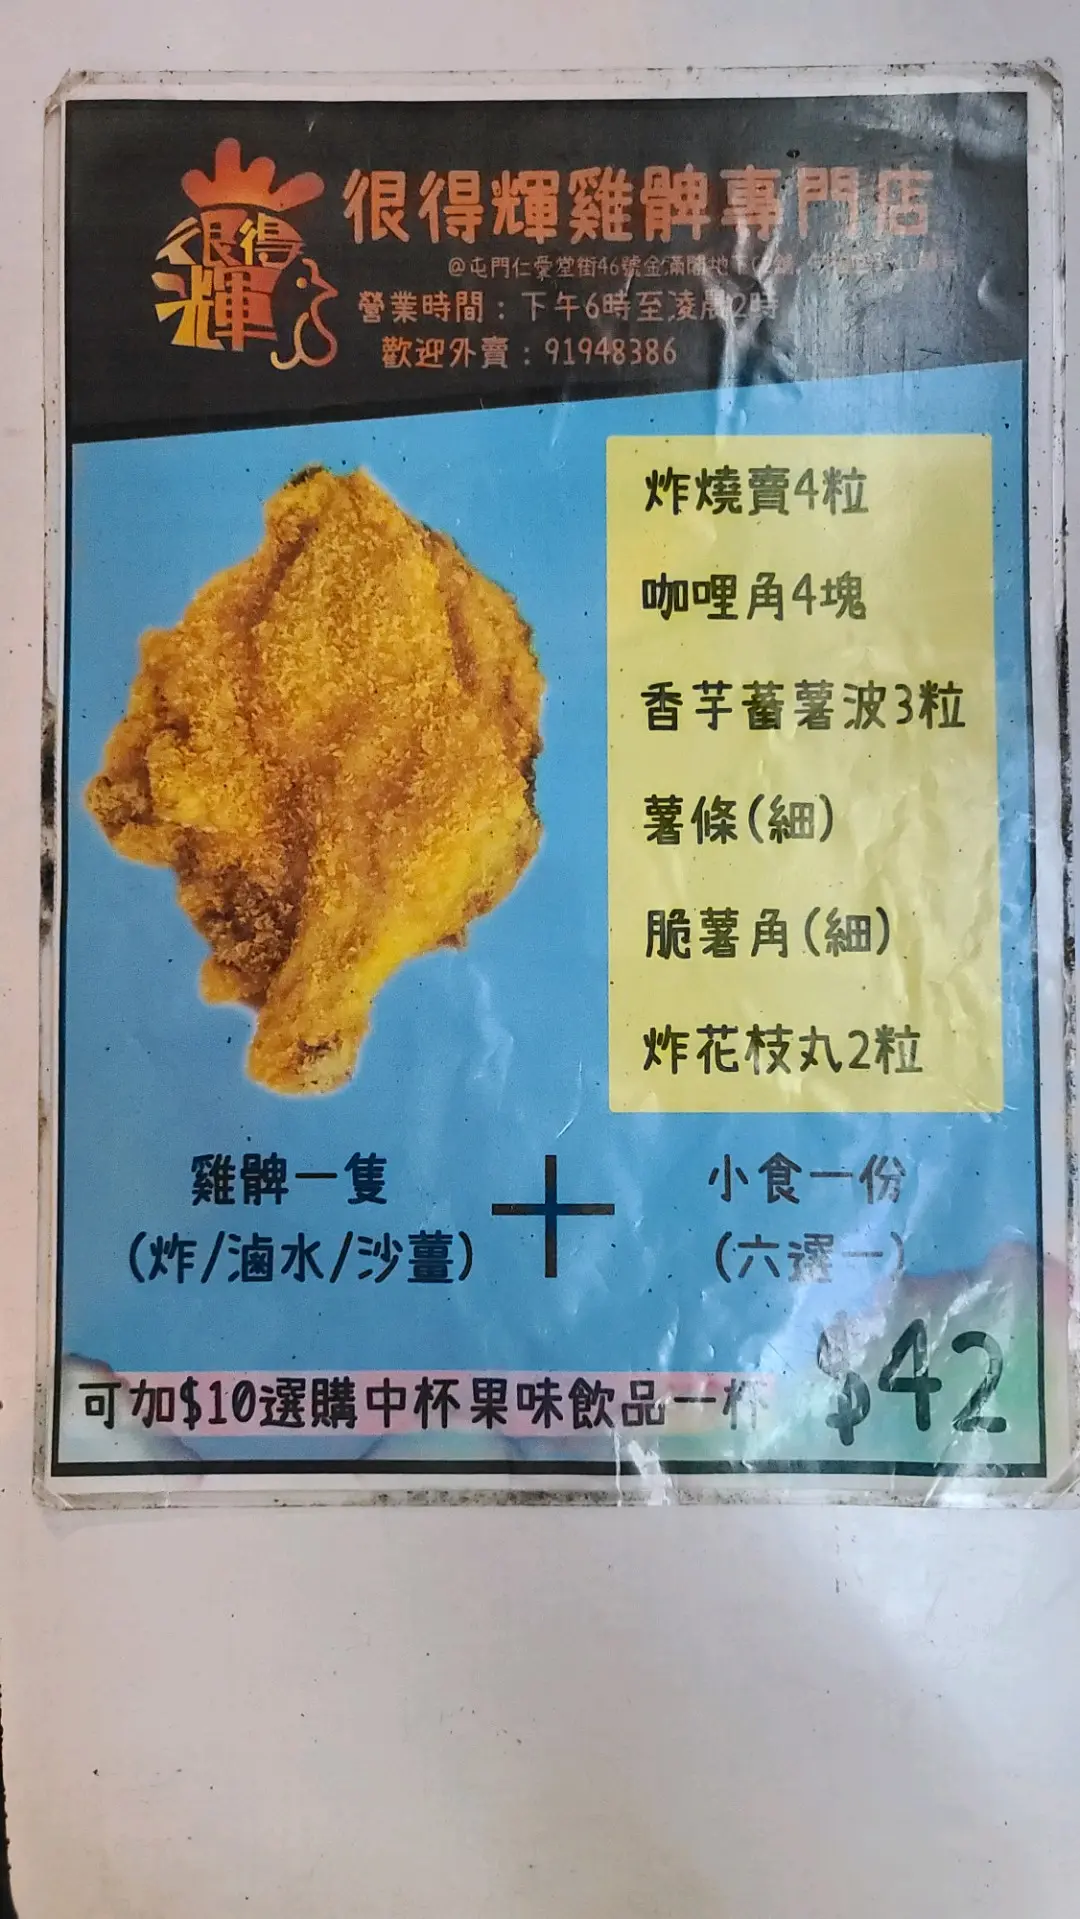 很得輝
很得輝雞髀專門店
@屯門仁愛堂街46號金滿閣地下
營業時間：下午6時至淩晨2時
歡迎外賣：91948386
炸燒賣4粒
咖哩角4塊
香芋蕃薯波3粒
薯條(細)
脆薯角(細)
炸花枝丸2粒
雞髀一隻
(炸/滷水/沙薑)
+
小食一份
(六選一)
$42
可加$10選購中杯果味飲品一杯